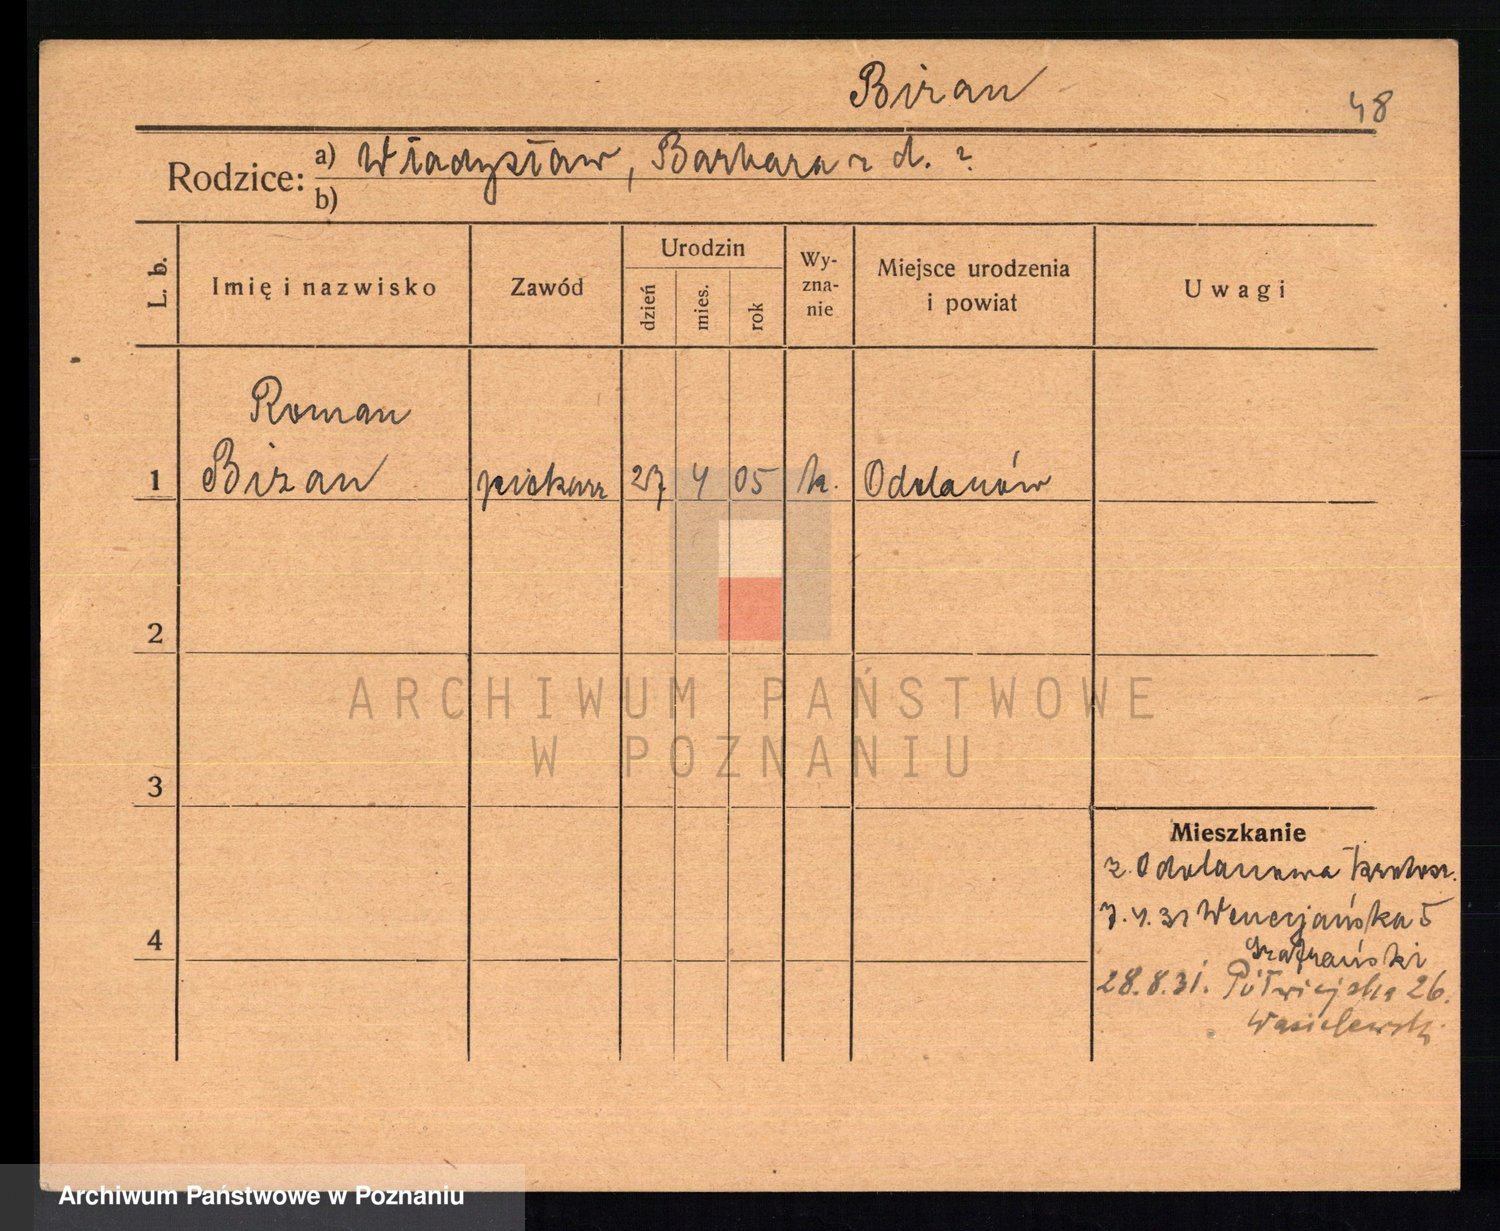 Biran
48
Rodzice: a) Władysław, Barbara z d. ?
b)
L. b.
Imię i nazwisko
Zawód
Urodzin
dzień
mies.
rok
Wy-
zna-
nie
Miejsce urodzenia
i powiat
Uwagi
Roman
1 Bizan piekarz 27 4 05 k. Odolanów
2
3
4
Mieszkanie
z. Odolanowa
7.4.31 Wenecjańska 5
Szafrański
28.8.31. Półwiejska 26.
Wasielewski
ARCHIWUM PAŃSTWOWE
W POZNANIU
Archiwum Państwowe w Poznaniu